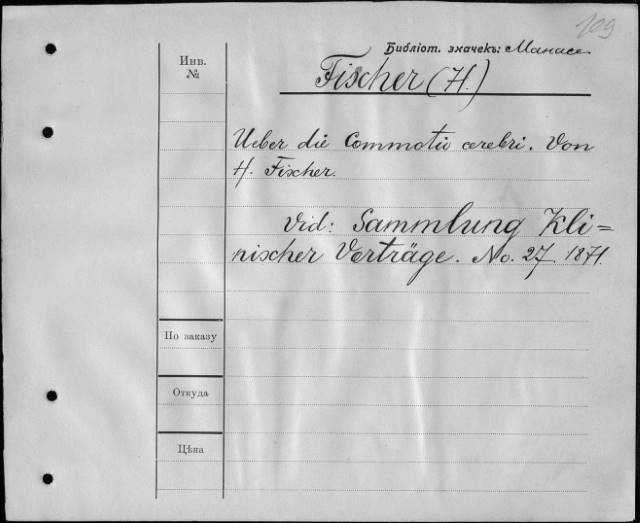 109
Библіот. значекъ: Манасе
Инв.
№
Fischer (H.)
Ueber die Commotio cerebri. Von
H. Fischer.
Vid: Sammlung Kli=
nischer Vorträge. No. 27. 1871.
По заказу
Откуда
Цѣна